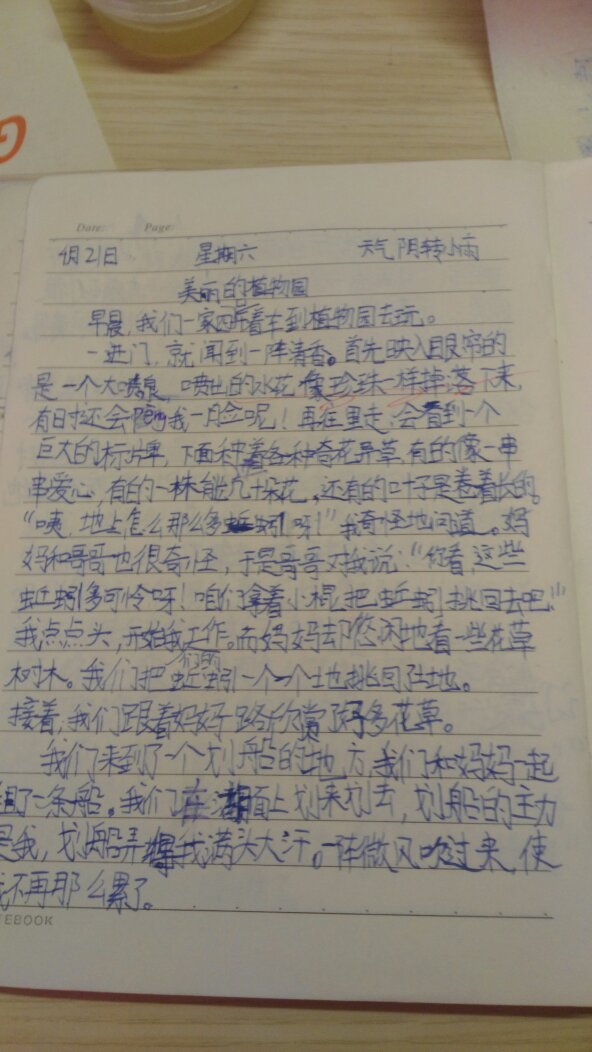 Date: Page:
4月21日 星期六 天气 阴转小雨
美丽的植物园
早晨,我们一家四 着车到植物园去玩。
一进门,就闻到一阵清香。首先映入眼帘的
是一个大喷泉,喷出的水花像珍珠一样掉落下来,
有时还会 我一脸呢!再往里走,会看到一个
巨大的标牌,下面种着各种奇花异草,有的像一串
串爱心,有的一株能 几十朵花,还有的叶子是卷着长的。
“咦,地上怎么那么多蚯蚓呀!”我奇怪地问道。妈
妈和哥哥也很奇怪,于是哥哥对我说:“你看,这些
蚯蚓多可怜呀!咱们拿着小棍把蚯蚓挑回去吧!”
我点点头,开始我工作。而妈妈却悠闲地看一些花草
树木。我们把蚯蚓们一个一个地挑回土地。
接着,我们跟着妈妈一路欣赏了好多花草。
我们来到了一个划船的地方,我们和妈妈一起
租了一条船。我们在湖面上划来划去,划船的主力
是我,划船弄得我满头大汗。一阵微风吹过来,使
我不再那么累了。
TEBOOK
G